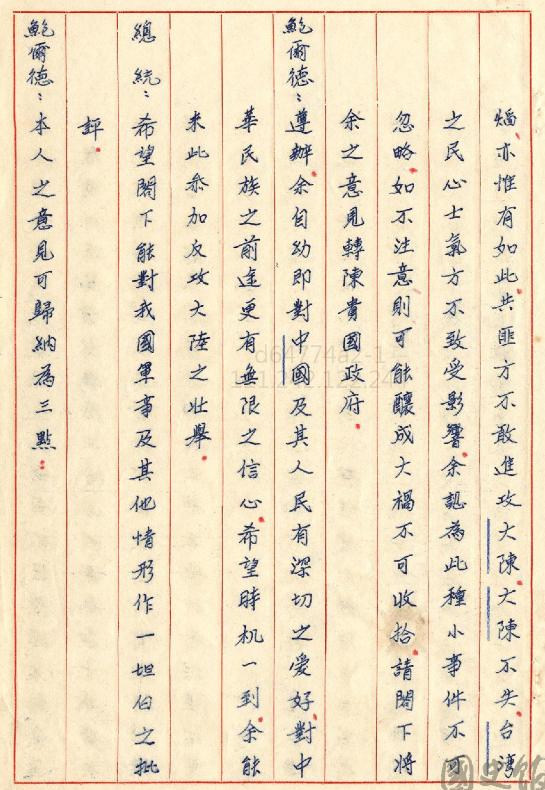 㷔亦惟有如此共匪方不敢進攻大陳大陳不失台灣
之民心士氣方不致受影響余認為此種小事件不可
忽略如不注意則可能釀成大禍不可收拾請閣下將
余之意見轉陳貴國政府
鮑爾德：遵辦余自幼即對中國及其人民有深切之愛好對中
華民族之前途更有無限之信心希望時机一到余能
來此參加反攻大陸之壯舉
總統：希望閣下能對我國軍事及其他情形作一坦白之批
評
鮑爾德：本人之意見可歸納為三點：
國史館